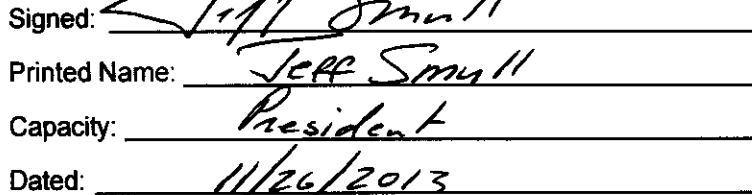 Signed: Jeff Smull
Printed Name: Jeff Smull
Capacity: President
Dated: 11/26/2013